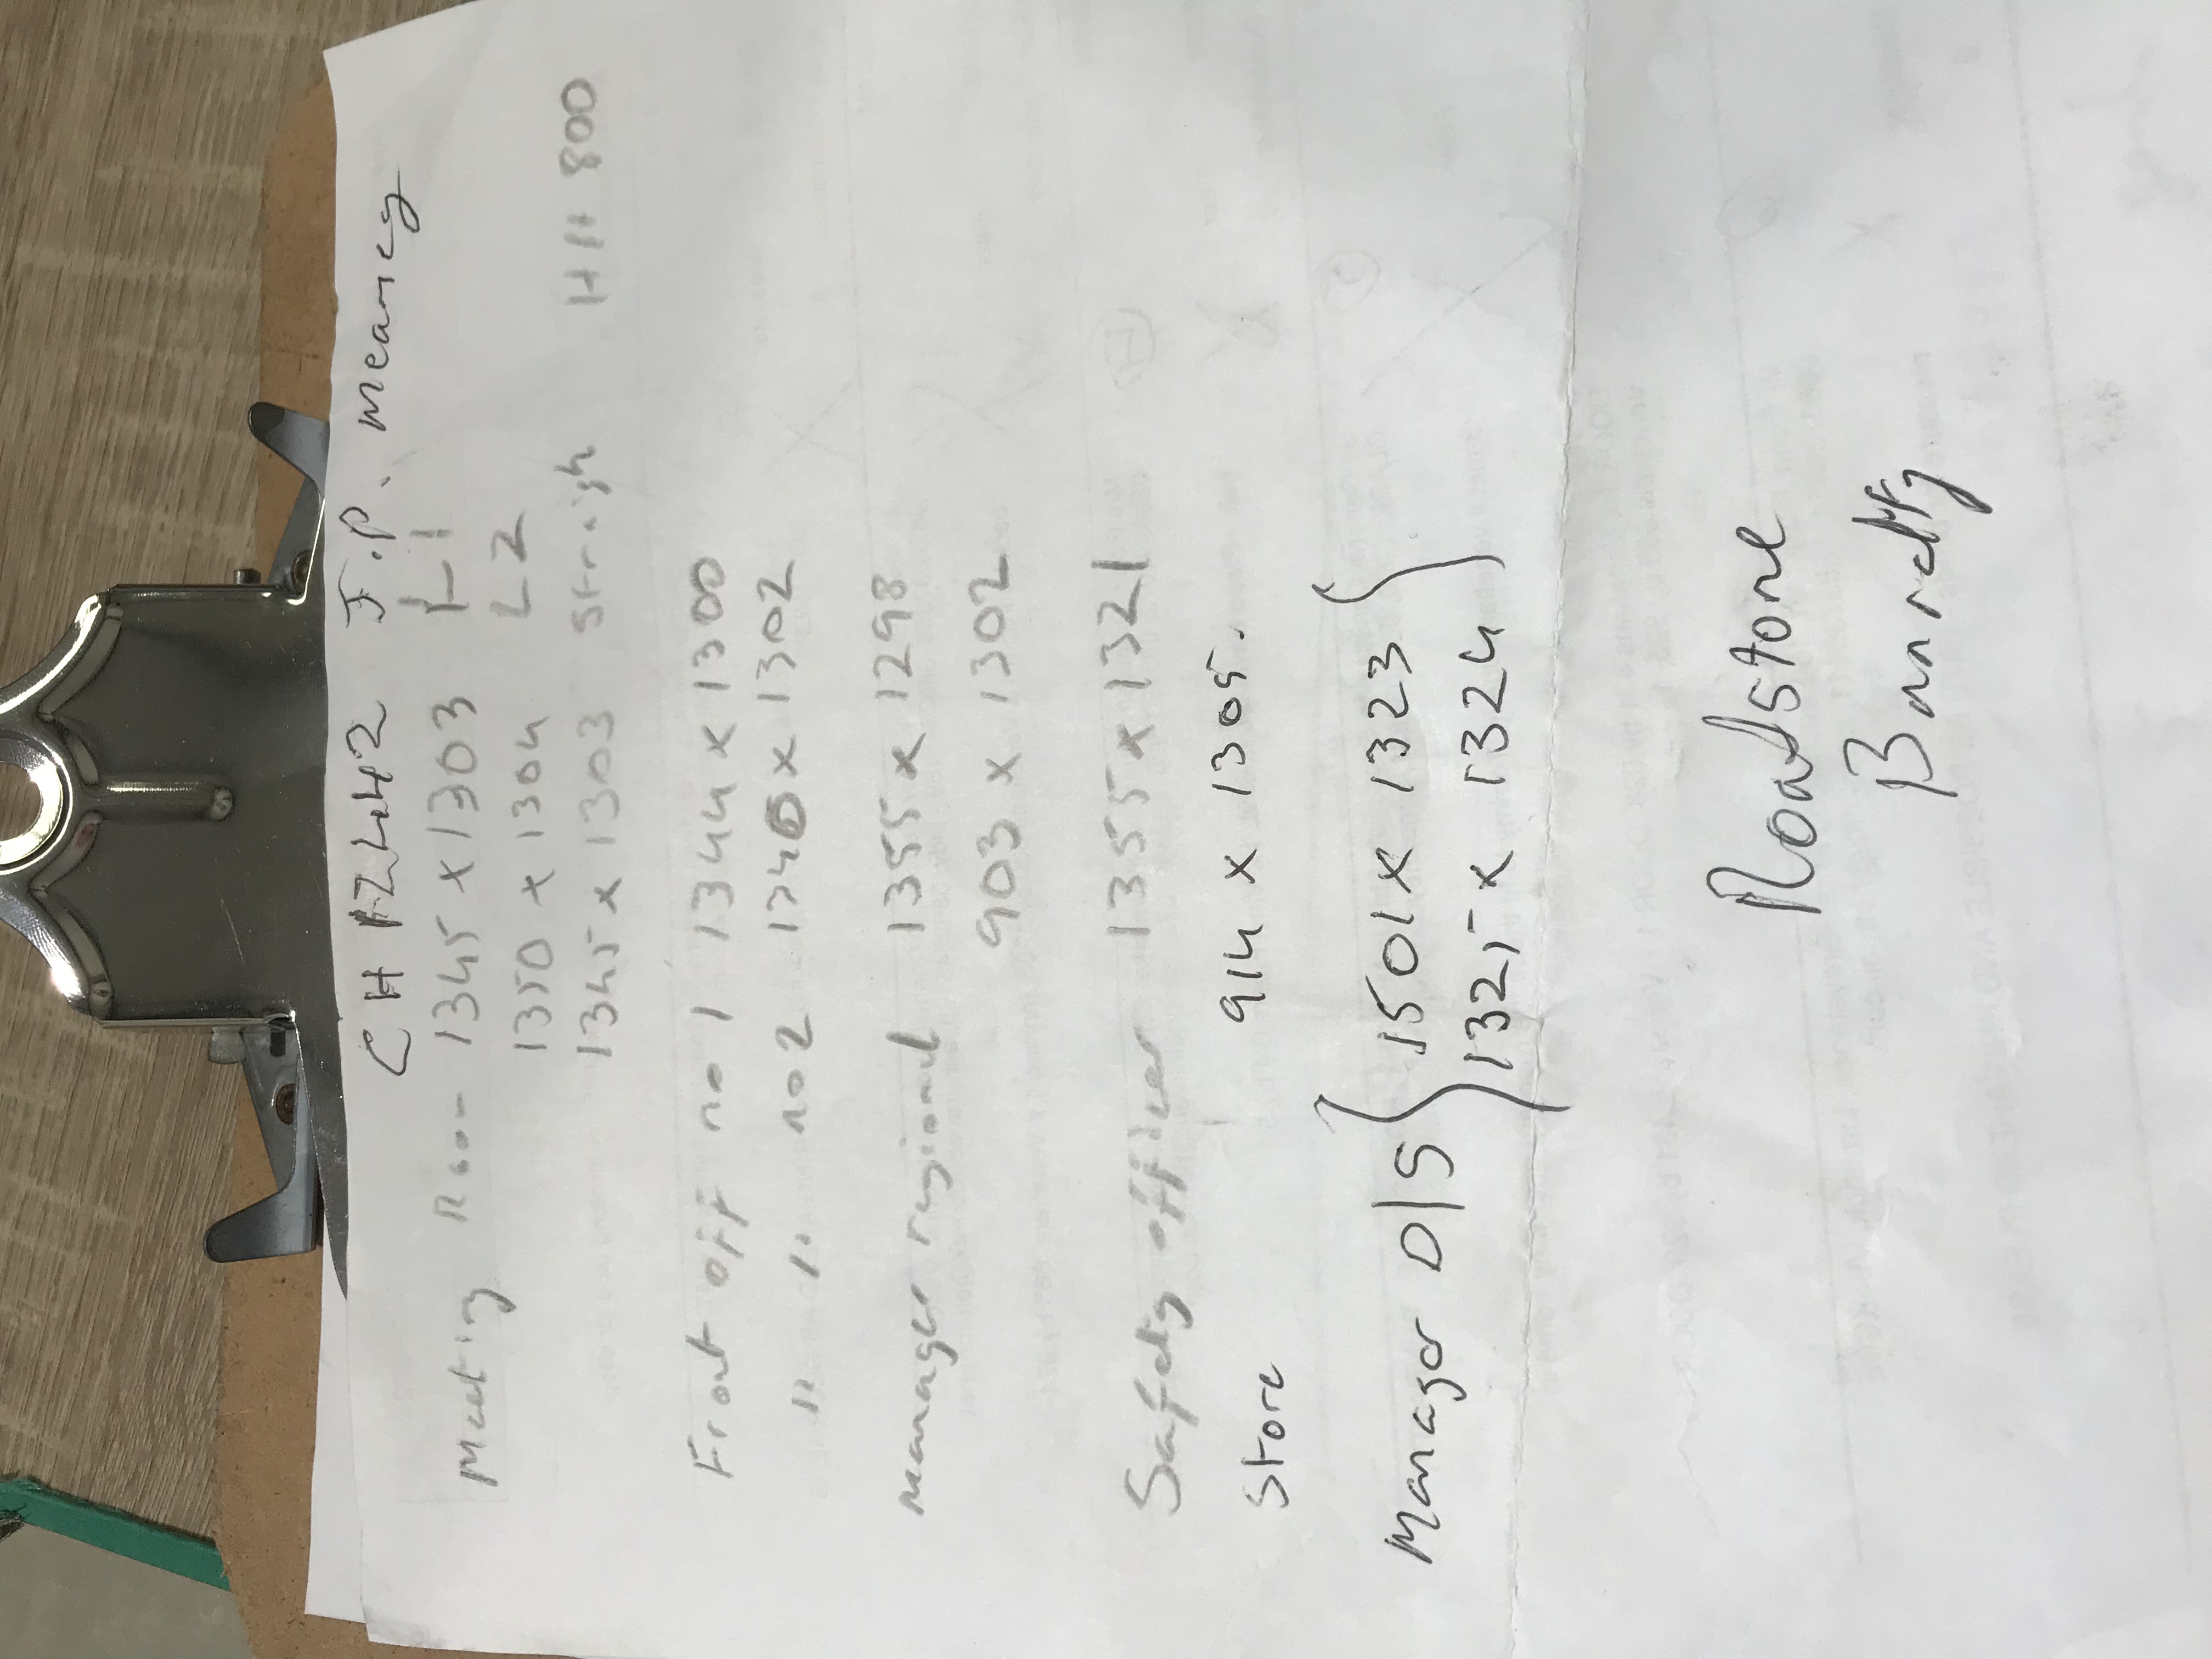 J.P. Meaney
Meeting Room 1345 x 1303 L1
1350 x 1304 L2
1345 x 1303 Straigh HH 800
Front off no 1 1344 x 1300
" " no 2 x 1302
Manager regional 1355 x 1298
903 x 1302
Safety officer 1355 x 1321
Store 914 x 1305.
Manager D/S } 1501 x 1323 }
1325 x 1324
Roadstone